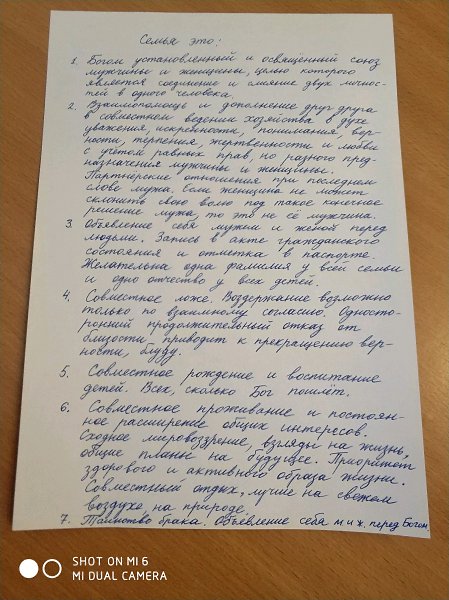 Семья это:
1. Богом установленный и освящённый союз
мужчины и женщины, целью которого
является соединение и слияние двух личнос-
тей в одного человека
2. Взаимопомощь и дополнение друг друга
в совместном ведении хозяйства в духе
уважения, искренности, понимания, вер-
ности, терпения, жертвенности и любви
с учётом равных прав, но разного пред-
назначения мужчины и женщины.
Партнёрские отношения при последнем
слове мужа. Если женщина не может
склонить свою волю под такое конечное
решение мужа, то это не её мужчина.
3. Объявление себя мужем и женой перед
людьми. Запись в акте гражданского
состояния и отметка в паспорте.
Желательна одна фамилия у всей семьи
и одно отчество у всех детей.
4. Совместное ложе. Воздержание возможно
только по взаимному согласию. Односто-
ронний продолжительный отказ от
близости приводит к прекращению вер-
ности, блуду.
5. Совместное рождение и воспитание
детей. Всех, сколько Бог пошлёт.
6. Совместное проживание и постоян-
ное расширение общих интересов.
Сходное мировоззрение, взгляды на жизнь,
общие планы на будущее. Приоритет
здорового и активного образа жизни.
Совместный отдых, лучше на свежем
воздухе на природе.
7. Таинство брака. Объявление себя м и ж. перед Богом.
SHOT ON MI 6
MI DUAL CAMERA